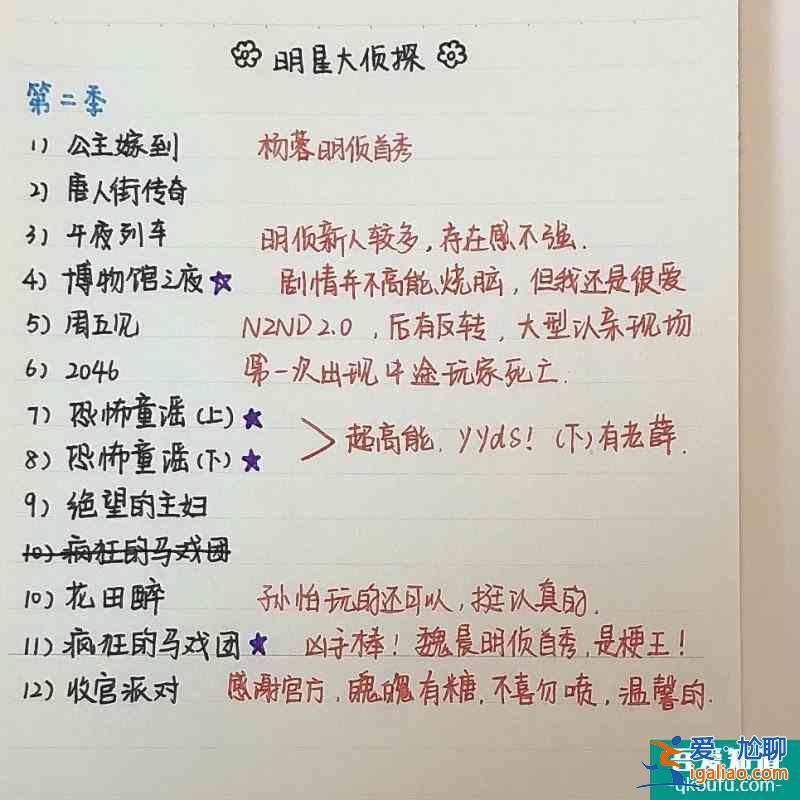 明星大侦探
第二季
1) 公主嫁到 杨蓉明侦首秀
2) 唐人街传奇
3) 午夜列车 明侦新人较多,存在感不强.
4) 博物馆之夜★ 剧情并不高能、烧脑,但我还是很爱
5) 周五见 NZND 2.0,后有反转,大型认亲现场
6) 2046 第一次出现中途玩家死亡.
7) 恐怖童谣(上)★
超高能. yyds!(下)有老薛.
8) 恐怖童谣(下)★
9) 绝望的主妇
10) 疯狂的马戏团
10) 花田醉 孙怡玩的还可以,挺认真的.
11) 疯狂的马戏团★ 凶手棒!魏晨明侦首秀,是梗王!
12) 收官派对 感谢官方,魄魄有糖,不喜勿喷,温馨的.
爱·尬聊
igaliao.com
qk5ufu.com-